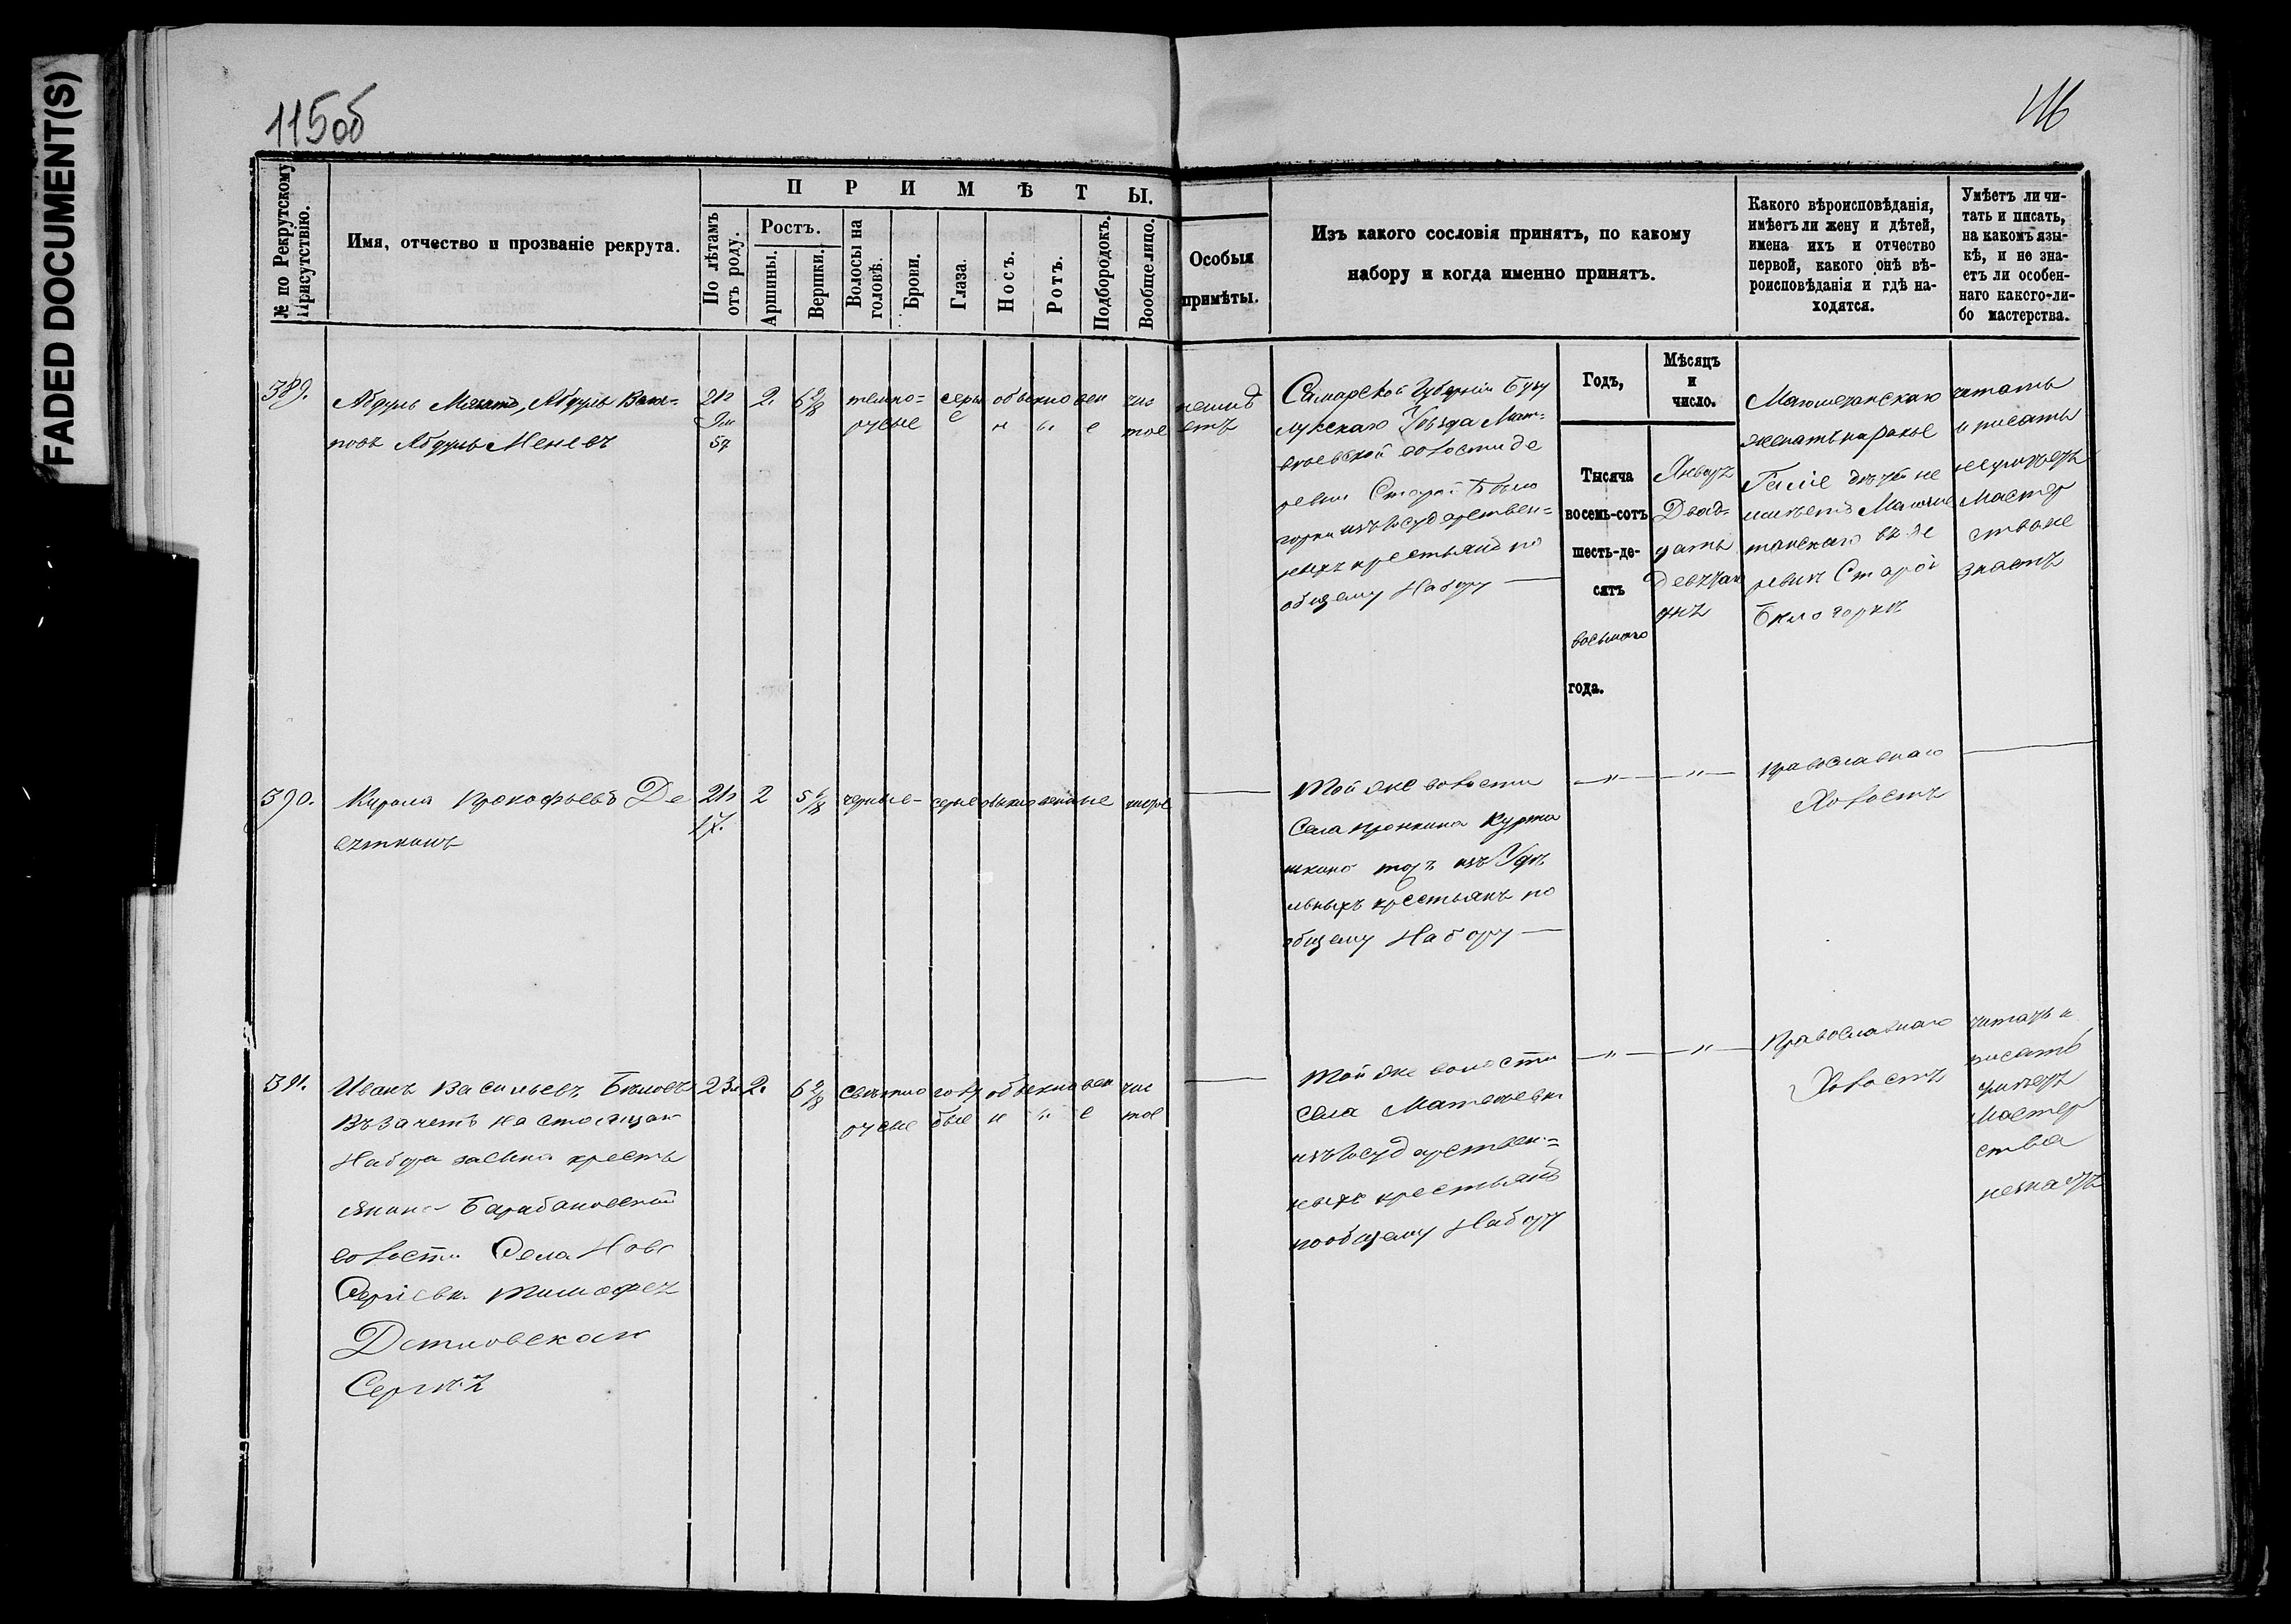 FADED DOCUMENT(S)
115 об
116
№ по Рекрутскому Присутствію.
Имя, отчество и прозваніе рекрута.
ПРИМѢТЫ.
По лѣтамъ отъ роду.
Ростъ.
Аршины.
Вершки.
Волосы на головѣ.
Брови.
Глаза.
Носъ.
Ротъ.
Подбородокъ.
Вообще лицо.
Особыя
примѣты.
Изъ какого сословія принятъ, по какому
набору и когда именно принятъ.
Какого вѣроисповѣданія,
имѣетъ ли жену и дѣтей,
имена ихъ и отчество
первой, какого онѣ вѣ-
роисповѣданія и гдѣ на-
ходятся.
Умѣетъ ли чи-
тать и писать,
на какомъ язы-
кѣ, и не зна-
етъ ли особен-
наго какого-ли-
бо мастерства.
389.
Абдулъ
Абдулъ
Абдулъ Меневъ
21
2.
6 2/8
темно=
русые
серы
е
обыкновен
н ы е
чис
тое
неимѣ
етъ
Самарской Губерніи Бузу
лукскаго Уѣзда Мат=
вѣевской волости де
ревни Старой Бѣло
горки изъ Государствен=
ныхъ крестьянъ по
общему Набору —
Годъ,
Тысяча
восемь-сотъ
шесть-де-
сятъ
восьмаго
года.
Мѣсяцъ
и
число.
Январь
Двад-
цать
Магометанскаго
женатъ на
дѣтей не
имѣетъ Магоме
танскаго въ де
ревнѣ Старой
Бѣлогоркѣ
читать
и писать
неумѣетъ
Мастер
ства не
знаетъ
390.
Кирила Прокофьевъ Де
21
2
5
черные-
серые
обыкновенные
чистое
—
Той же волости
Села Пронкина
тожъ изъ Удѣ
льныхъ крестьянъ по
общему Набору —
— " —
— " —
Православнаго
Холостъ
—
391.
Иванъ Васильевъ Бѣловъ
Въ зачетъ настоящаго
Набора за сына кресть
янина Барабановской
волости Села Ново
Сергіевки Тимофея
Сергѣя
23
2.
6 2/8
свѣтло
русые
голу
бые
обыкновен
н ы е
чис
тое
—
Той же волости
села Матвѣевки
изъ Государствен=
ныхъ крестьянъ
по общему Набору
— " —
— " —
Православнаго
Холостъ
читать и
писать
умѣетъ
Мастер
ства
незнаетъ